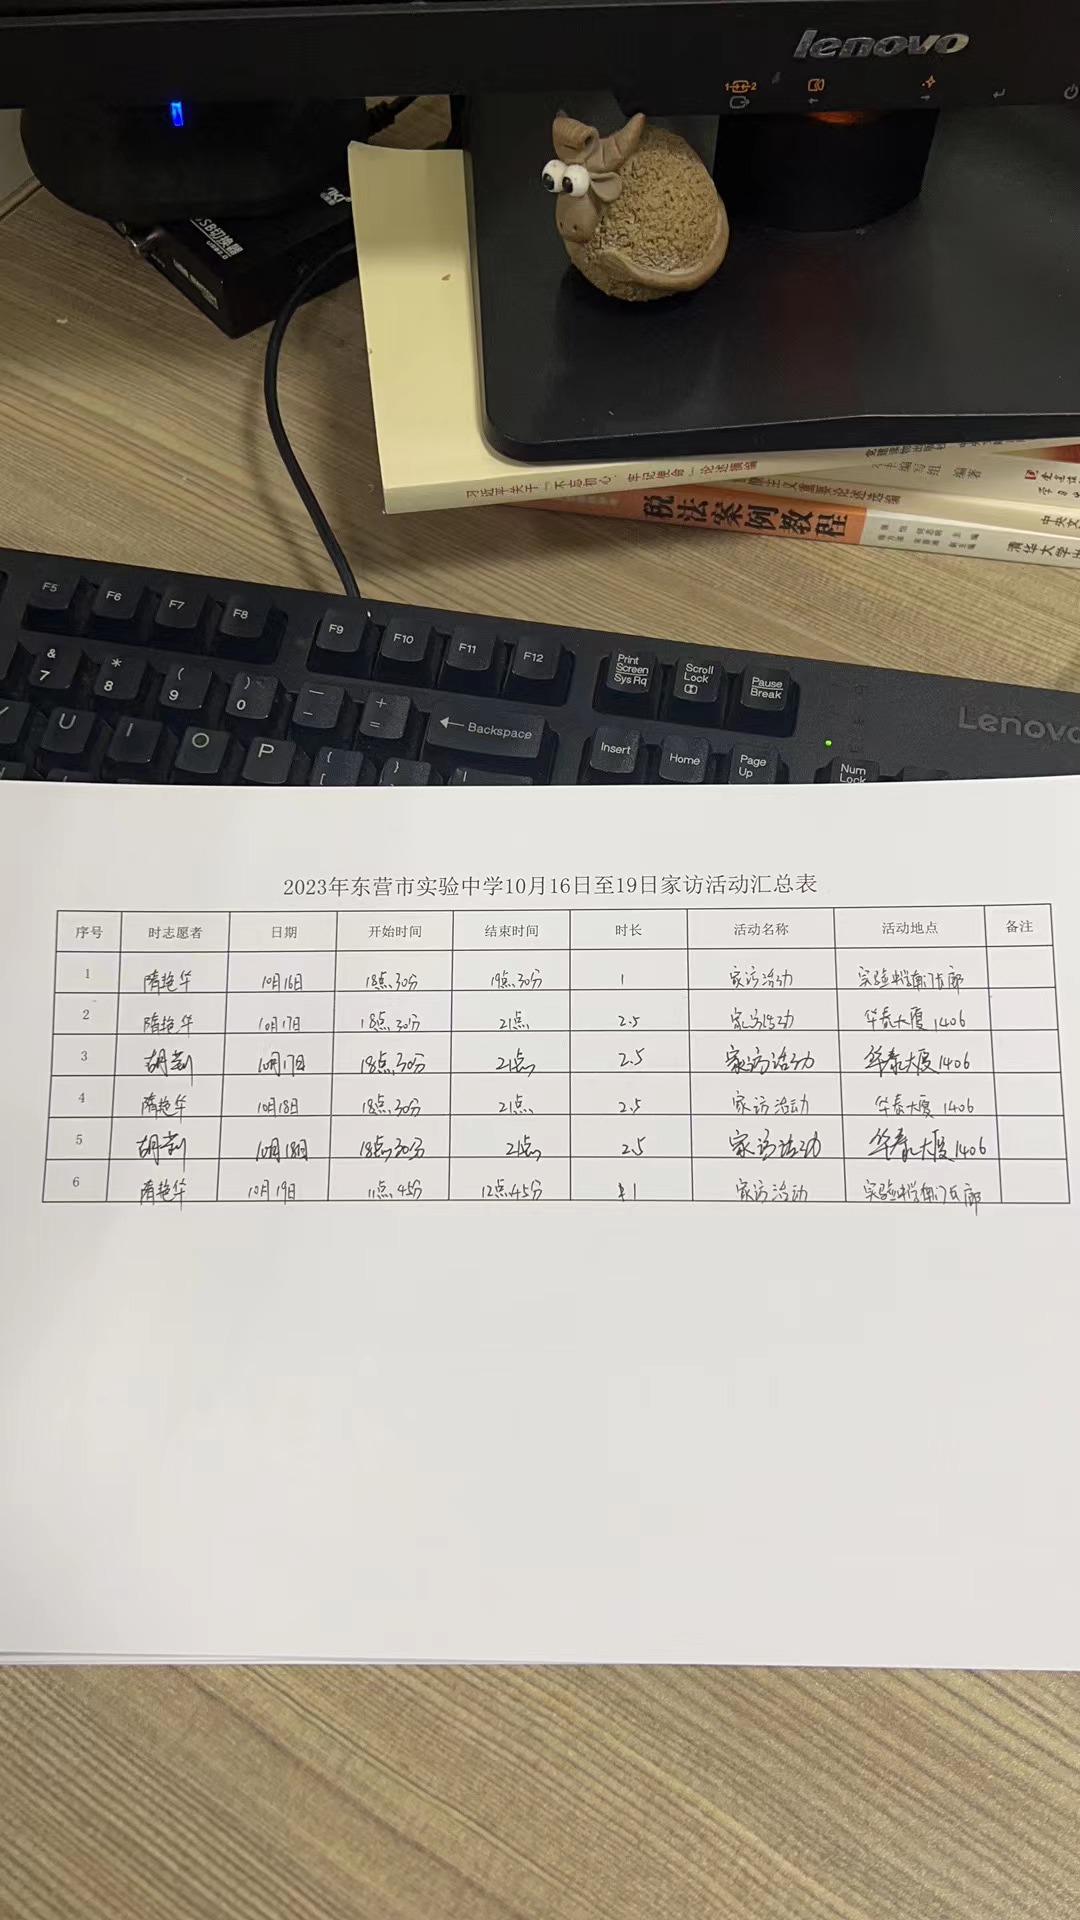 lenovo
USB切换器
USB2.0
习近平关于"不忘初心、牢记使命"论述摘编
编写组 编著
税法案例教程
主编
副主编
中央文
清华大学出
F5 F6 F7 F8 F9 F10 F11 F12 Print Screen SysRq Scroll Lock Pause Break
& 7 * 8 ( 9 ) 0 — - + = ← Backspace Insert Home Page Up Num Lock
Lenovo
U I O P { [ } |
2023年东营市实验中学10月16日至19日家访活动汇总表
序号 时志愿者 日期 开始时间 结束时间 时长 活动名称 活动地点 备注
1 隋艳华 10月16日 18点30分 19点30分 1 家访活动 实验中学南门长廊
2 隋艳华 10月17日 18点30分 21点 2.5 家访活动 华泰大厦1406
3 胡莹 10月17日 18点30分 21点 2.5 家访活动 华泰大厦1406
4 隋艳华 10月18日 18点30分 21点 2.5 家访活动 华泰大厦1406
5 胡莹 10月18日 18点30分 21点 2.5 家访活动 华泰大厦1406
6 隋艳华 10月19日 11点45分 12点45分 1 家访活动 实验中学南门长廊